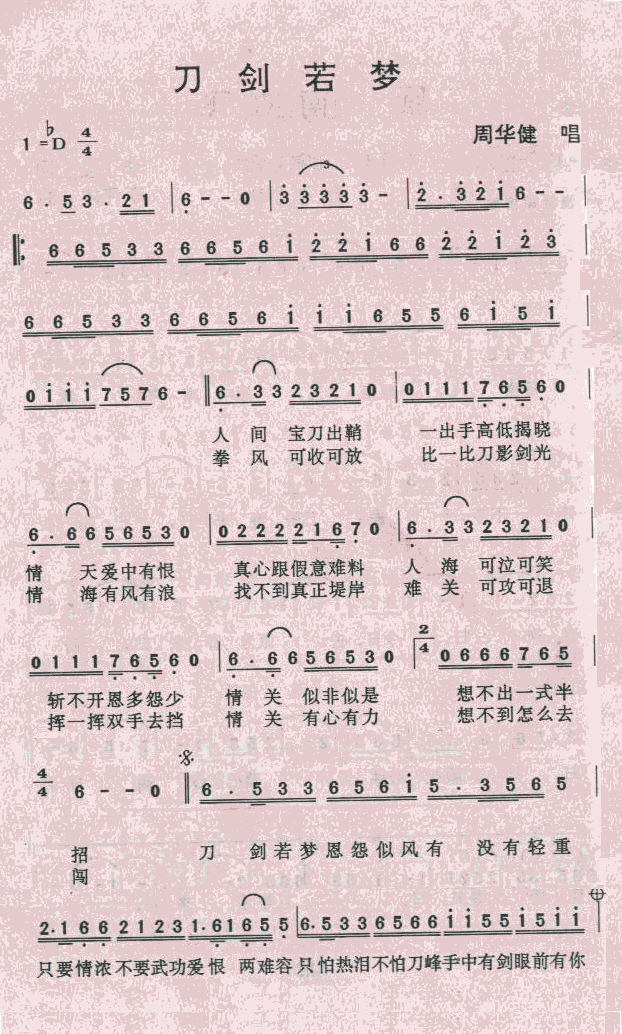 刀剑若梦
1=♭D 4/4 周华健 唱
6·53·21 | 6--0 | 3 3333- | 2·3216-- |
‖: 66533 66561 | 22166 22123 |
66533 66561 | 11655 6151 |
0111 7576- ‖ 6·33 23210 | 0111 76560 |
人间 宝刀出鞘 一出手高低揭晓
拳风 可收可放 比一比刀影剑光
6·66 56530 | 0222 21670 | 6·33 23210 |
情 天爱中有恨 真心跟假意难料 人海 可泣可笑
情 海有风有浪 找不到真正堤岸 难关 可攻可退
0111 76560 | 6·66 56530 | 2/4 0666 765 |
斩不开恩多怨少 情关 似非似是 想不出一式半
挥一挥双手去挡 情关 有心有力 想不到怎么去
4/4 6--0 ‖ 6·533 6561 | 5·3565 |
招 刀 剑若梦恩怨似风有 没有轻重
闯
2·166 2123 1·6165 5 | 6·533 6566 1155 1511
只要情浓不要武功爱恨 两难容只怕热泪不怕刀峰手中有剑眼前有你